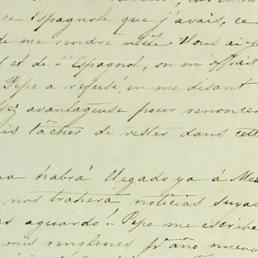 l'Espagnole que j'avais, ce
de me rendre utile Vous ai-je
et de l'Espagnol, on m'offrait
Pepe a refusé, en me disant
avantageuse pour renoncer
tâcher de rester dans cett
habrá llegado ya á Me
nos traherá noticias suyas
aguardo! Pepe me escribe
mis renglones pr año nuevo